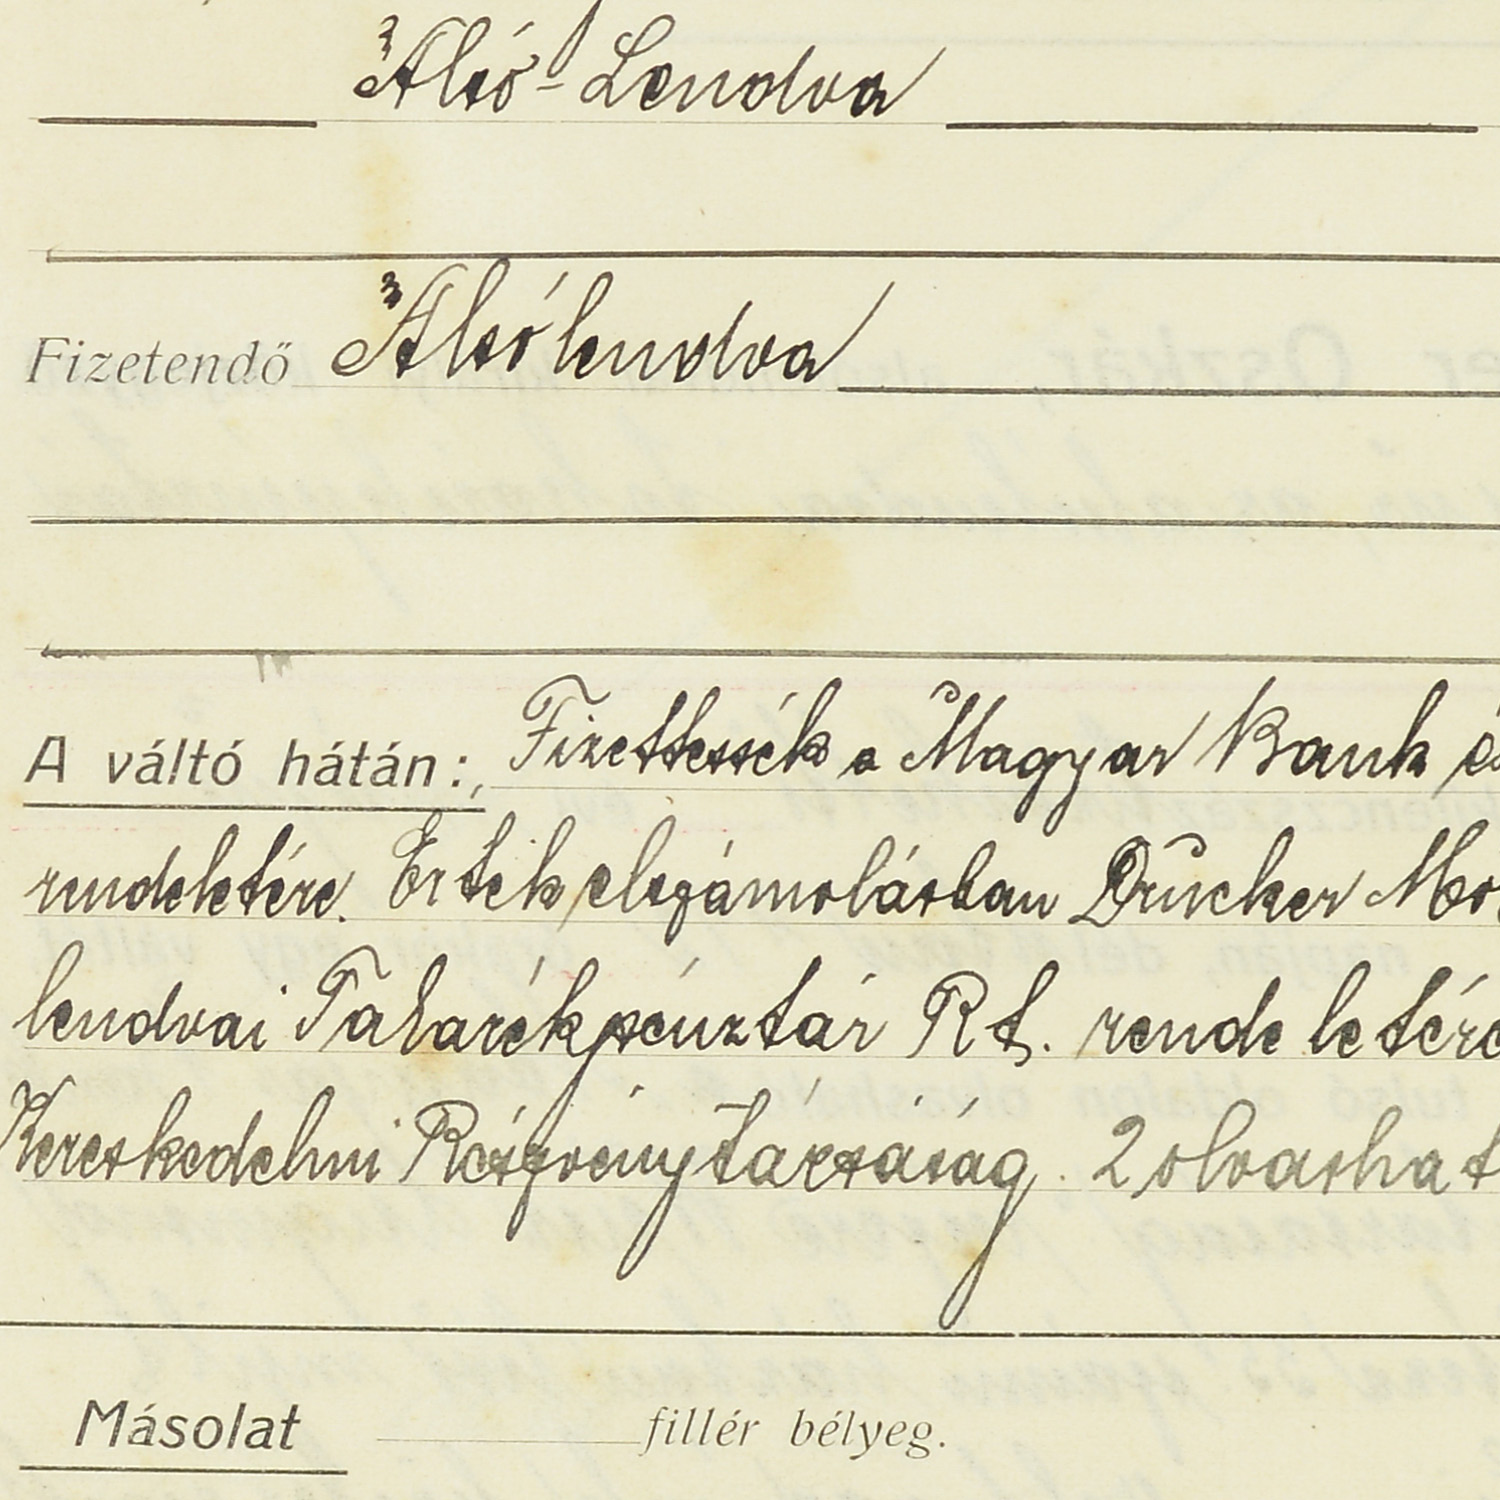 Alsó-Lendva
Fizetendő Alsólendva
A váltó hátán: Fizettessék a Magyar Bank és
rendeletére. Érték elszámolásban Drucker
lendvai Takarékpénztár Rt. rendeletére
Kereskedelmi Részvénytársaság. 2 olvashat
Másolat fillér bélyeg.